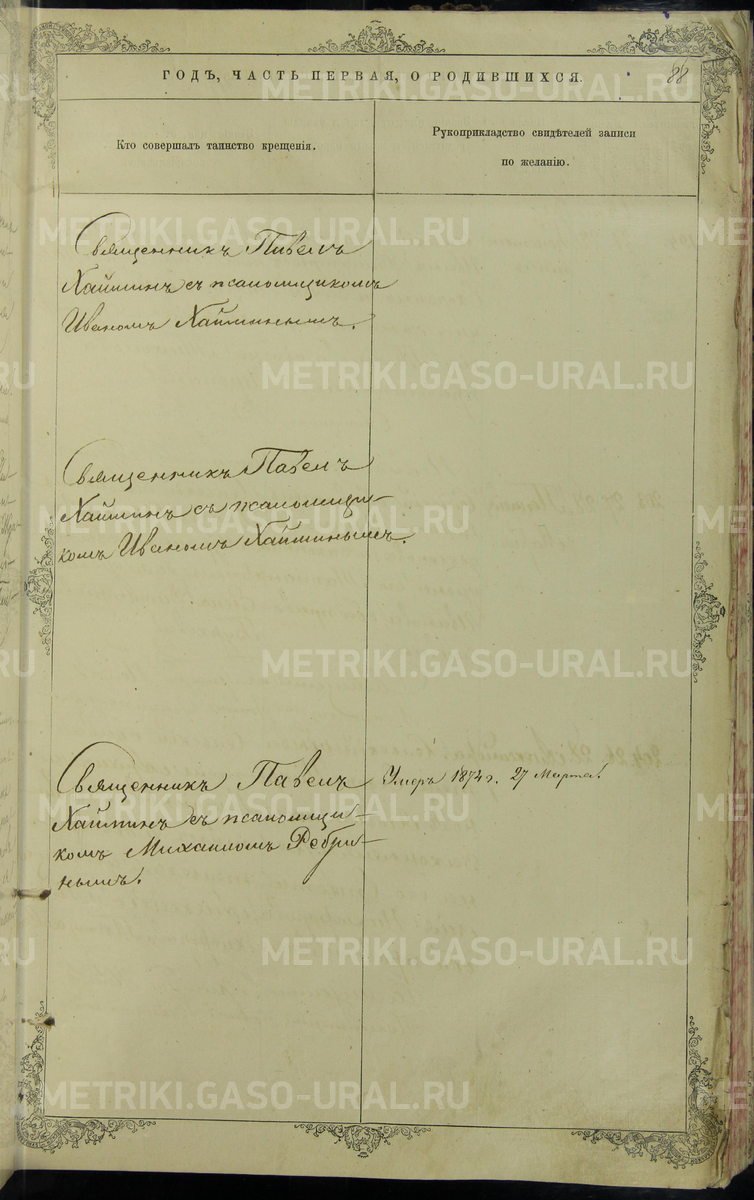 ГОДЪ, ЧАСТЬ ПЕРВАЯ, О РОДИВШИХСЯ.
88
Кто совершалъ таинство крещенія.
Рукоприкладство свидѣтелей записи
по желанію.
Священникъ Павелъ
Хайминъ съ псаломщикомъ
Иваномъ Хайминымъ.
Священникъ Павелъ
Хайминъ съ псаломщи-
комъ Иваномъ Хайминымъ.
Священникъ Павелъ
Хайминъ съ псаломщи-
комъ Михаиломъ Ребри-
нымъ.
Умеръ 1874 г. 27 Марта.
METRIKI.GASO-URAL.RU